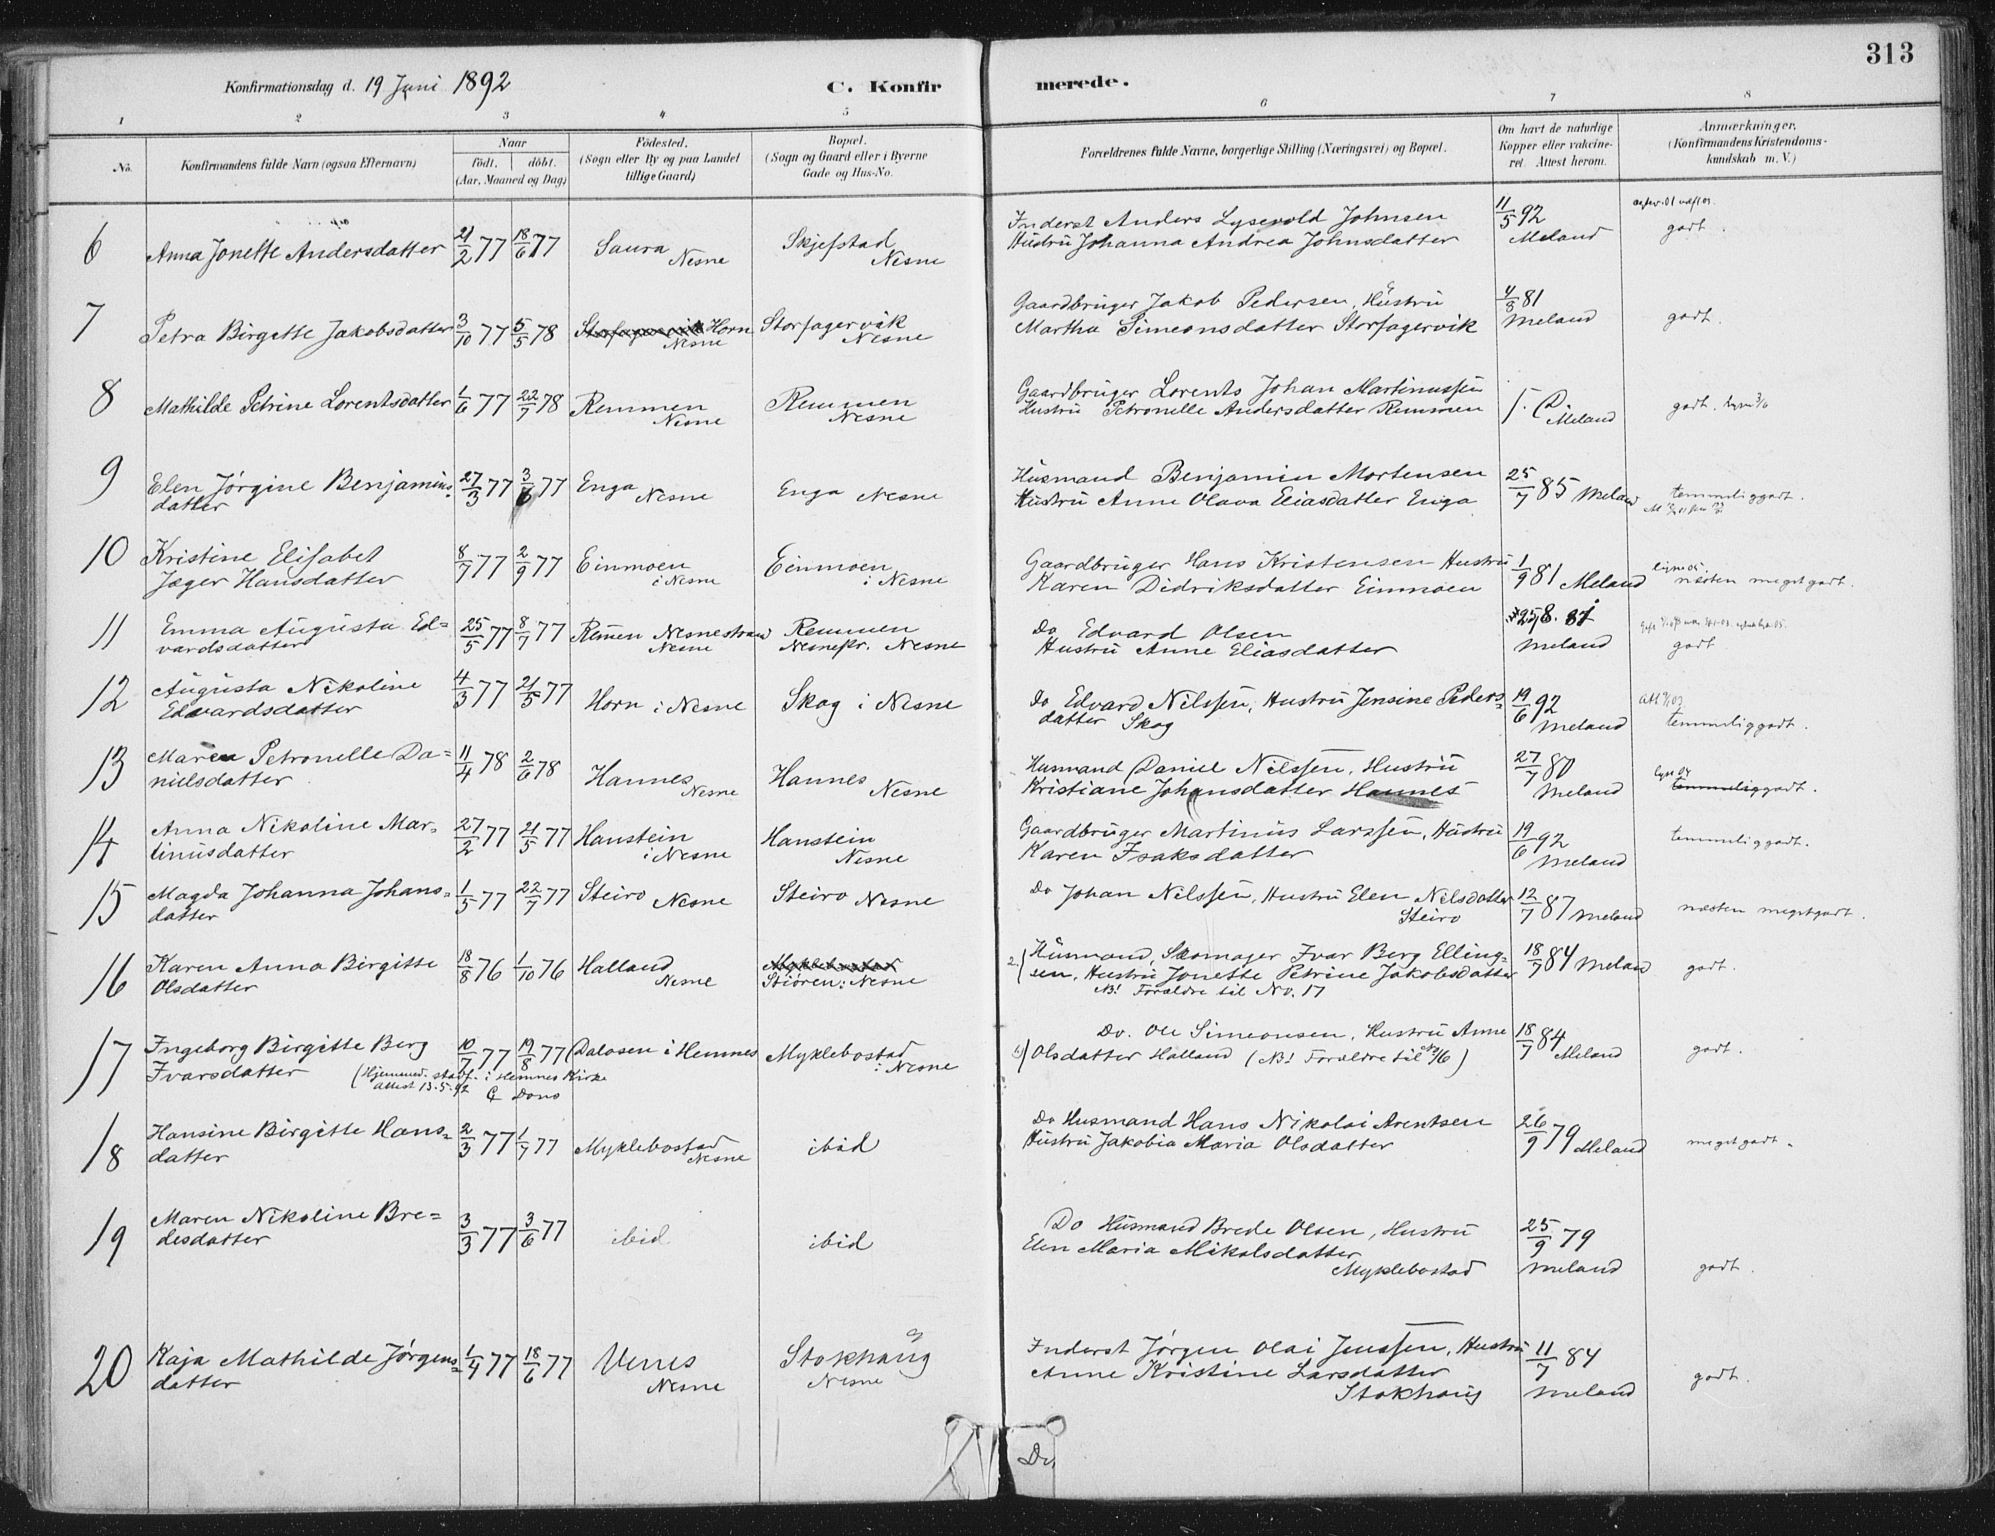 313
Konfirmationsdag d. 19 Juni 1892
C. Konfir merede.
1 2 3 4 5 6 7 8
No.
Konfirmandens fulde Navn (ogsaa Efternavn)
Naar
født. døbt.
(Aar, Maaned og Dag)
Fødested.
(Sogn eller By og paa Landet
tillige Gaard)
Bopæl.
(Sogn og Gaard eller i Byerne
Gade og Hus-No.
Forældrenes fulde Navne, borgerlige Stilling (Næringsvei) og Bopæl.
Om havt de naturlige
Kopper eller vakcine-
ret. Attest herom.
Anmærkninger.
(Konfirmandens Kristendoms-
kundskab m. V.)
6 Anna Jonette Andersdatter 21/2 77 18/6 77 Saura Nesne Skjefstad Nesne
Inderst Anders Lysevold Johnsen
Hustru Johanna Andrea Johnsdatter
11/5 92 Meland godt.
7 Petra Birgitte Jakobsdatter 3/10 77 5/5 78 Horn Nesne Storfagervik Nesne
Gaardbruger Jakob Pedersen, Hustru
Martha Simeonsdatter Storfagervik
4/3 81 Meland godt.
8 Mathilde Petrine Lorentsdatter 1/6 77 22/7 78 Remmen Nesne Remmen Nesne
Gaardbruger Lorents Johan Martinussen
Hustru Petronelle Andersdatter Remmen
Meland godt.
9 Elen Jørgine Benjamins-
datter 27/3 77 3/6 77 Enga Nesne Enga Nesne
Husmand Benjamin Mortensen
Hustru Anne Olava Eliasdatter Enga
25/7 85 Meland temmelig godt.
10 Kristine Elisabet
Jæger Hansdatter 8/7 77 2/9 77 Einmoen i Nesne Einmoen i Nesne
Gaardbruger Hans Kristensen Hustru
Karen Didriksdatter Einmoen
1/9 81 Meland næsten meget godt.
11 Emma Augusta Ed=
vardsdatter 25/5 77 8/7 77 Remen Nesnestrand Nesne Remmen Nesnepr. Nesne
Do Edvard Olsen
Hustru Anne Eliasdatter
Meland godt
12 Augusta Nikoline
Edvardsdatter 4/3 77 21/5 77 Horn i Nesne Skog i Nesne
Do Edvard Nilssen, Hustru Jensine Peders-
datter Skog
19/6 92 Meland temmelig godt.
13 Maren Petronelle Da=
nielsdatter 11/4 78 2/6 78 Hannes Nesne Hannes Nesne
Husmand Daniel Nilssen, Hustru
Kristiane Johansdatter Hannes
27/7 80 Meland temmelig godt.
14 Anna Nikoline Mar-
tinusdatter 27/2 77 21/5 77 Hanstein i Nesne Hanstein Nesne
Gaardbruger Martinus Larssen, Hustru
Karen Isaksdatter
19/6 92 Meland temmelig godt.
15 Magda Johanna Johans-
datter 1/5 77 22/7 77 Steiro Nesne Steiro Nesne
Do Johan Nilssen, Hustru Elen Nilsdatter
Steiro
12/7 87 Meland næsten meget godt.
16 Karen Anna Birgitte
Olsdatter 18/8 76 1/10 76 Halland Nesne Myklebostad Stiören: Nesne
2) Husmand, Skomager Ivar Berg Elling-
sen, Hustru Jonette Petrine Jakobsdatter
NB! Forældre til No. 17
18/7 84 Meland godt.
17 Ingeborg Birgitte Berg
Ivarsdatter 10/7 77 19/8 77 Dalosen i Hemnes Myklebostad i Nesne
(Hjemmed. stadf. i Hemnes Kirke
attest 13-5-92
1) Do. Ole Simeonsen, Hustru Anne
Olsdatter Halland (NB! Forældre til No 16)
18/7 84 Meland godt.
18 Hansine Birgitte Hans-
datter 2/3 77 1/7 77 Myklebostad Nesne ibid
Do Husmand Hans Nikolai Arentsen
Hustru Jakobia Maria Olsdatter
26/9 79 Meland meget godt.
19 Maren Nikoline Bre=
desdatter 3/3 77 3/6 77 ibid ibid
Do Husmand Brede Olsen, Hustru
Elen Maria Mikalsdatter
Myklebostad
25/9 79 Meland godt.
20 Kaja Mathilde Jørgens-
datter 1/4 77 18/6 77 Venes Nesne Stokhaug Nesne
Inderst Jørgen Olai Jenssen, Hustru
Anne Kristine Larsdatter
Stokhaug
11/7 84 Meland godt.
Do,